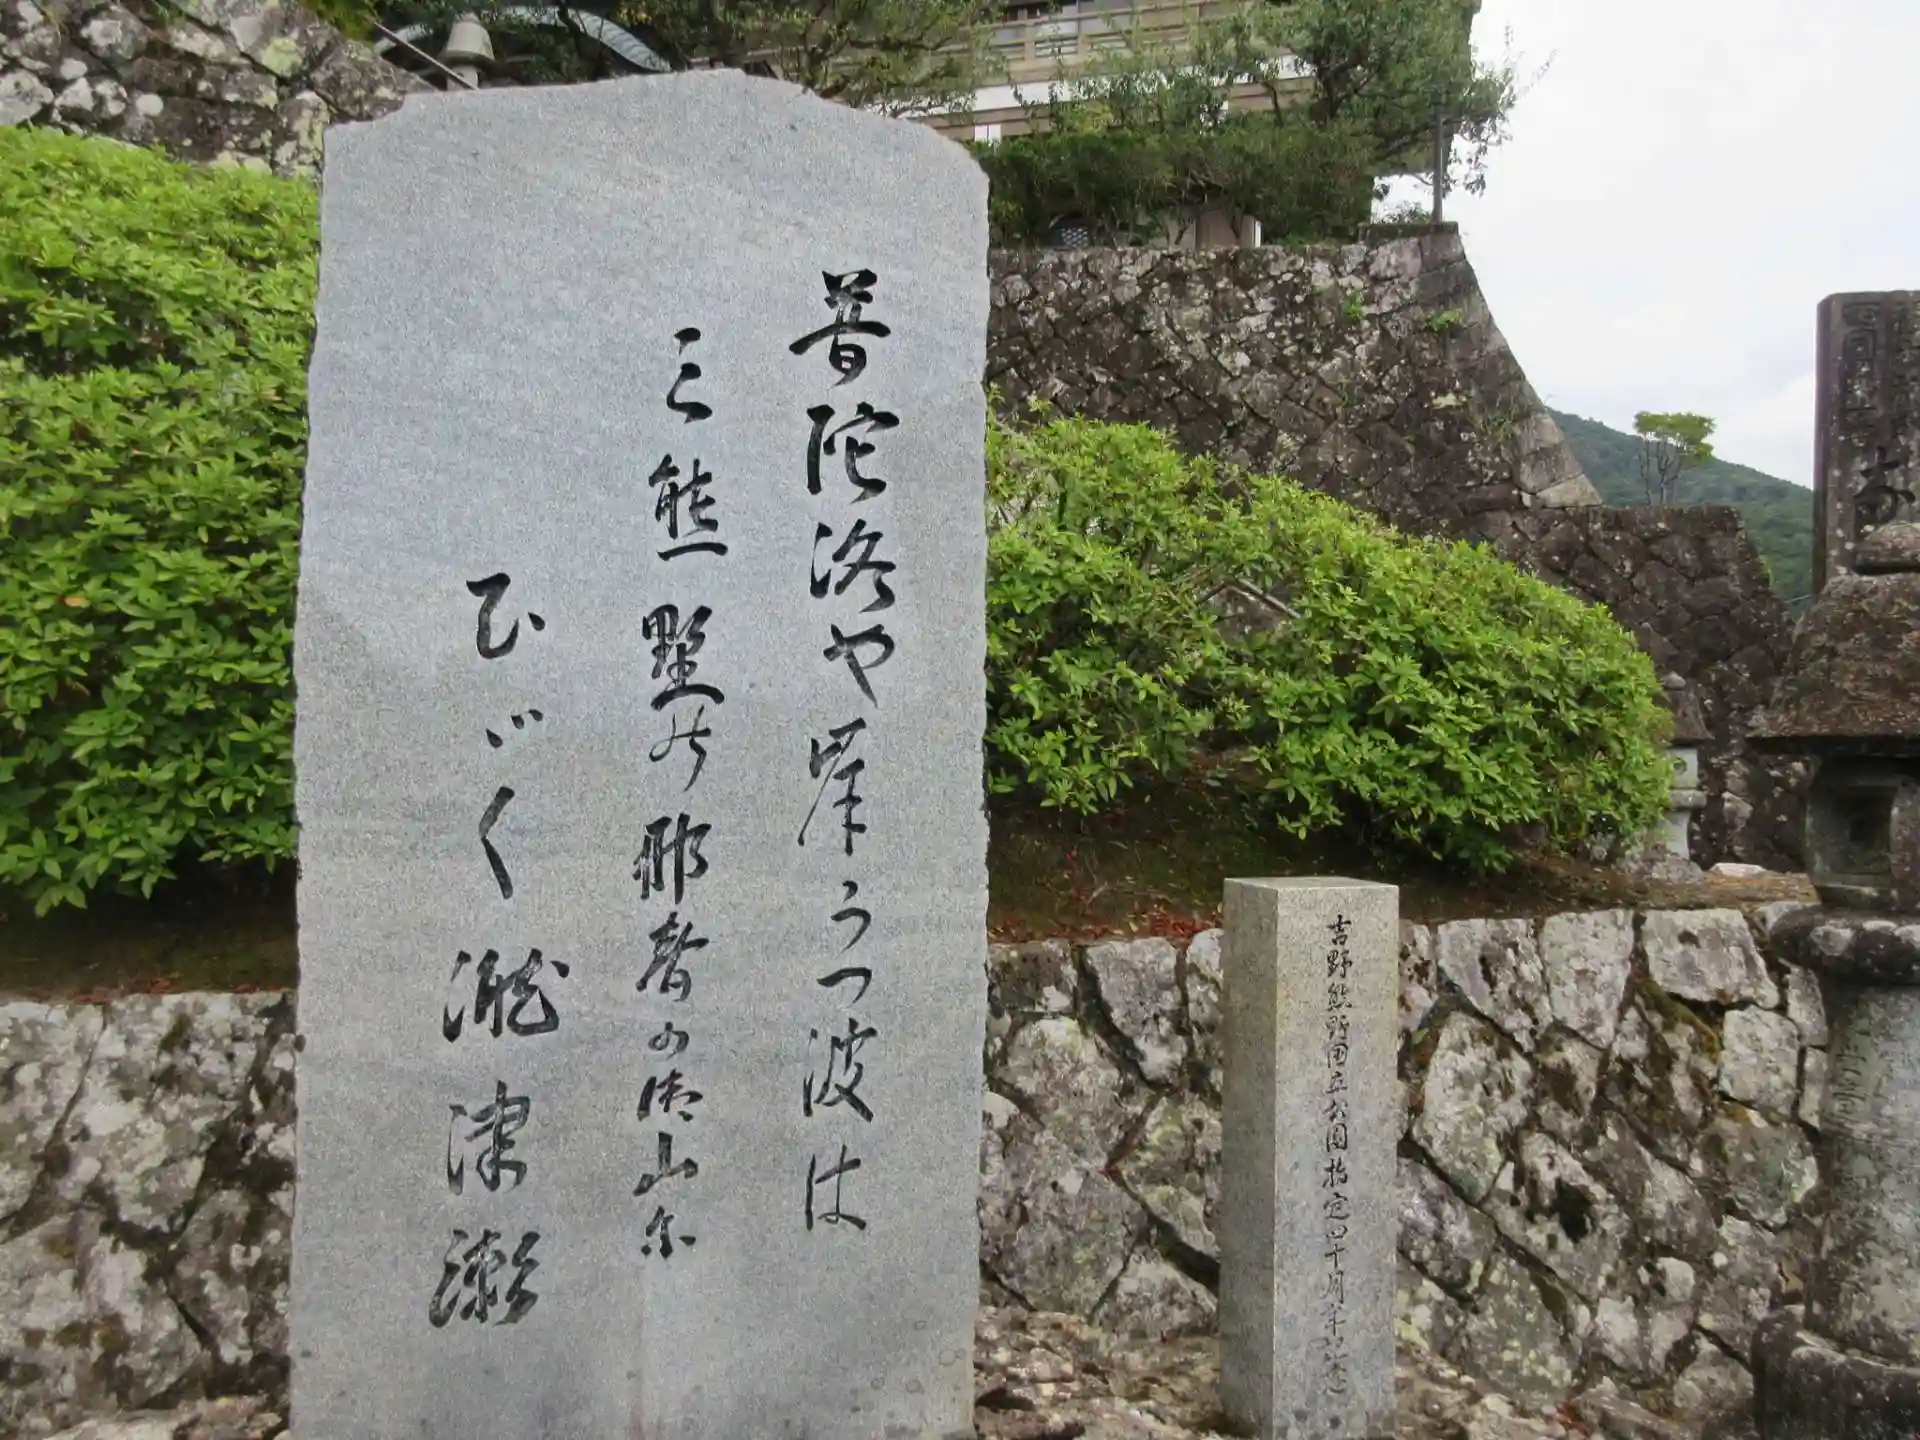 普陀洛や岸うつ波は
三熊野の那智の御山尓
ひゞく瀧津瀬
吉野熊野国立公園指定四十周年記念